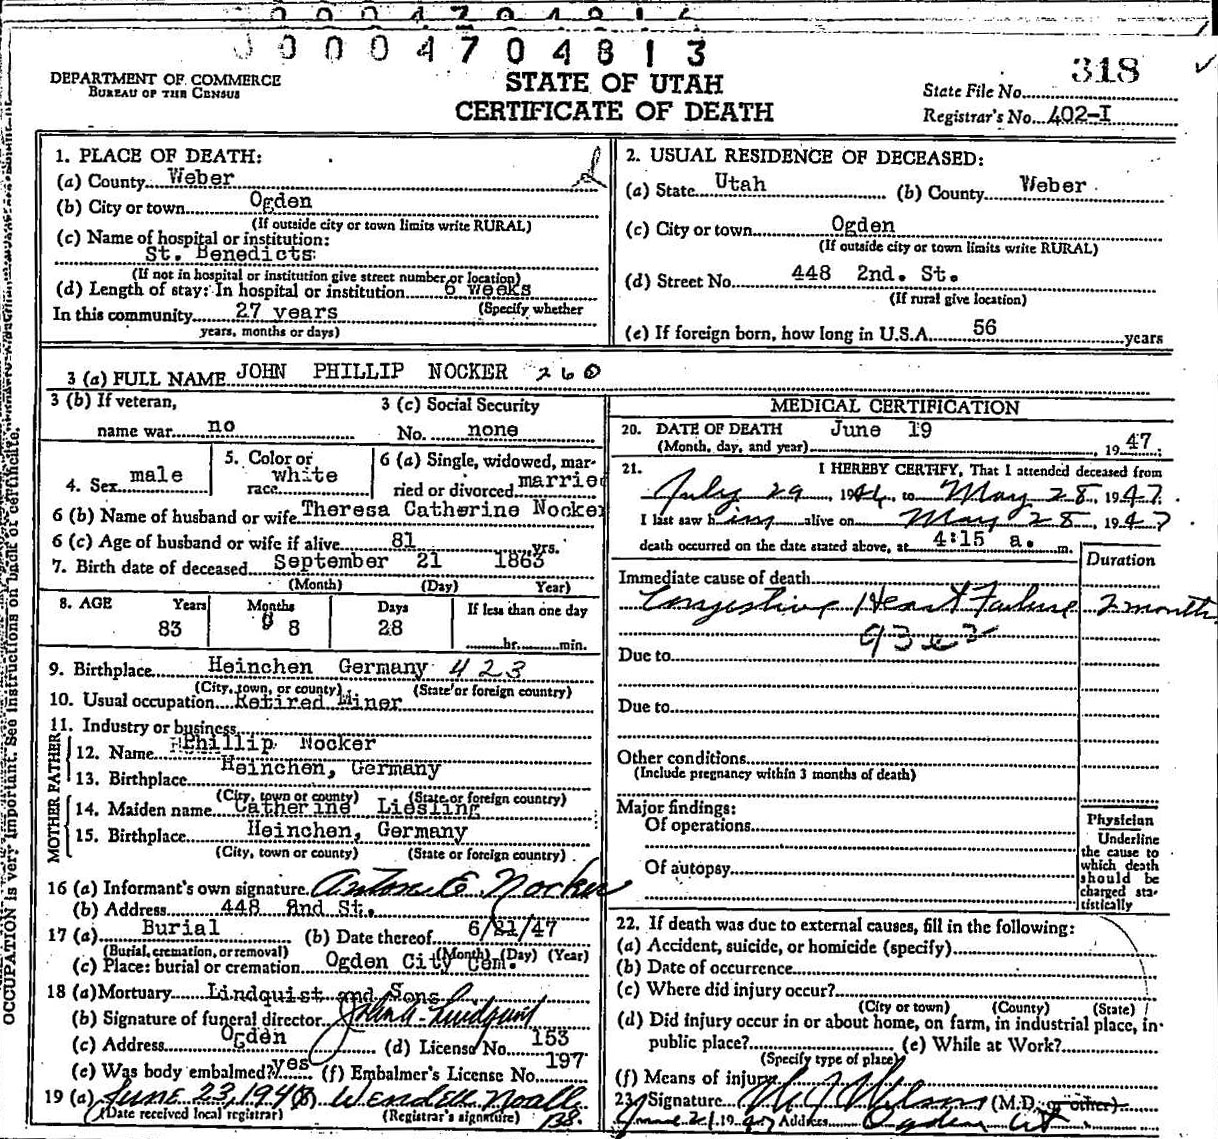 00004704813
DEPARTMENT OF COMMERCE
BUREAU OF THE CENSUS
STATE OF UTAH
CERTIFICATE OF DEATH
318
State File No.
Registrar's No. 402-I
1. PLACE OF DEATH:
(a) County Weber
(b) City or town Ogden
(If outside city or town limits write RURAL)
(c) Name of hospital or institution:
St. Benedicts
(If not in hospital or institution give street number or location)
(d) Length of stay: In hospital or institution 6 weeks
(Specify whether
In this community 27 years
years, months or days)
2. USUAL RESIDENCE OF DECEASED:
(a) State Utah (b) County Weber
(c) City or town Ogden
(If outside city or town limits write RURAL)
(d) Street No. 448 2nd. St.
(If rural give location)
(e) If foreign born, how long in U.S.A. 56 years
3 (a) FULL NAME JOHN PHILLIP NOCKER 260
3 (b) If veteran,
name war no
3 (c) Social Security
No. none
4. Sex male
5. Color or
race white
6 (a) Single, widowed, mar-
ried or divorced married
6 (b) Name of husband or wife Theresa Catherine Nocker
6 (c) Age of husband or wife if alive 81 yrs.
7. Birth date of deceased September 21 1863
(Month) (Day) Year)
8. AGE Years Months Days If less than one day
83 8 28 hr. min.
9. Birthplace Heinchen Germany 423
(City, town, or county) (State or foreign country)
10. Usual occupation Retired Miner
11. Industry or business
FATHER
12. Name Phillip Nocker
13. Birthplace Heinchen, Germany
(City, town or county) (State or foreign country)
MOTHER
14. Maiden name Catherine Liesling
15. Birthplace Heinchen, Germany
(City, town or county) (State or foreign country)
16 (a) Informant's own signature Antone C. Nocker
(b) Address 448 2nd St.
17 (a) Burial (b) Date thereof 6/21/47
(Burial, cremation, or removal) (Month) (Day) (Year)
(c) Place: burial or cremation Ogden City Cem.
18 (a) Mortuary Lindquist and Sons
(b) Signature of funeral director John A. Lindquist
(c) Address Ogden (d) License No. 153
(e) Was body embalmed? yes (f) Embalmer's License No. 197
19 (a) June 23, 194 (b) Wendell Noall
(Date received local registrar) (Registrar's signature) 138.
MEDICAL CERTIFICATION
20. DATE OF DEATH June 19
(Month, day, and year) 1947
21. I HEREBY CERTIFY, That I attended deceased from
July 29, 1946, to May 28, 1947.
I last saw him alive on May 28, 1947
death occurred on the date stated above, at 4:15 a. m.
Duration
Immediate cause of death
Congestive Heart Failure 2 months
Due to
Due to
Other conditions
(Include pregnancy within 3 months of death)
Major findings:
Of operations
Of autopsy
Physician
Underline
the cause to
which death
should be
charged sta-
tistically
22. If death was due to external causes, fill in the following:
(a) Accident, suicide, or homicide (specify)
(b) Date of occurrence
(c) Where did injury occur?
(City or town) (County) (State)
(d) Did injury occur in or about home, on farm, in industrial place, in
public place? (e) While at Work?
(Specify type of place)
(f) Means of injury
23. Signature Wilson (M.D. or other)
June 21, 1947 Address Ogden Ut
OCCUPATION is very important. See instructions on back of certificate.